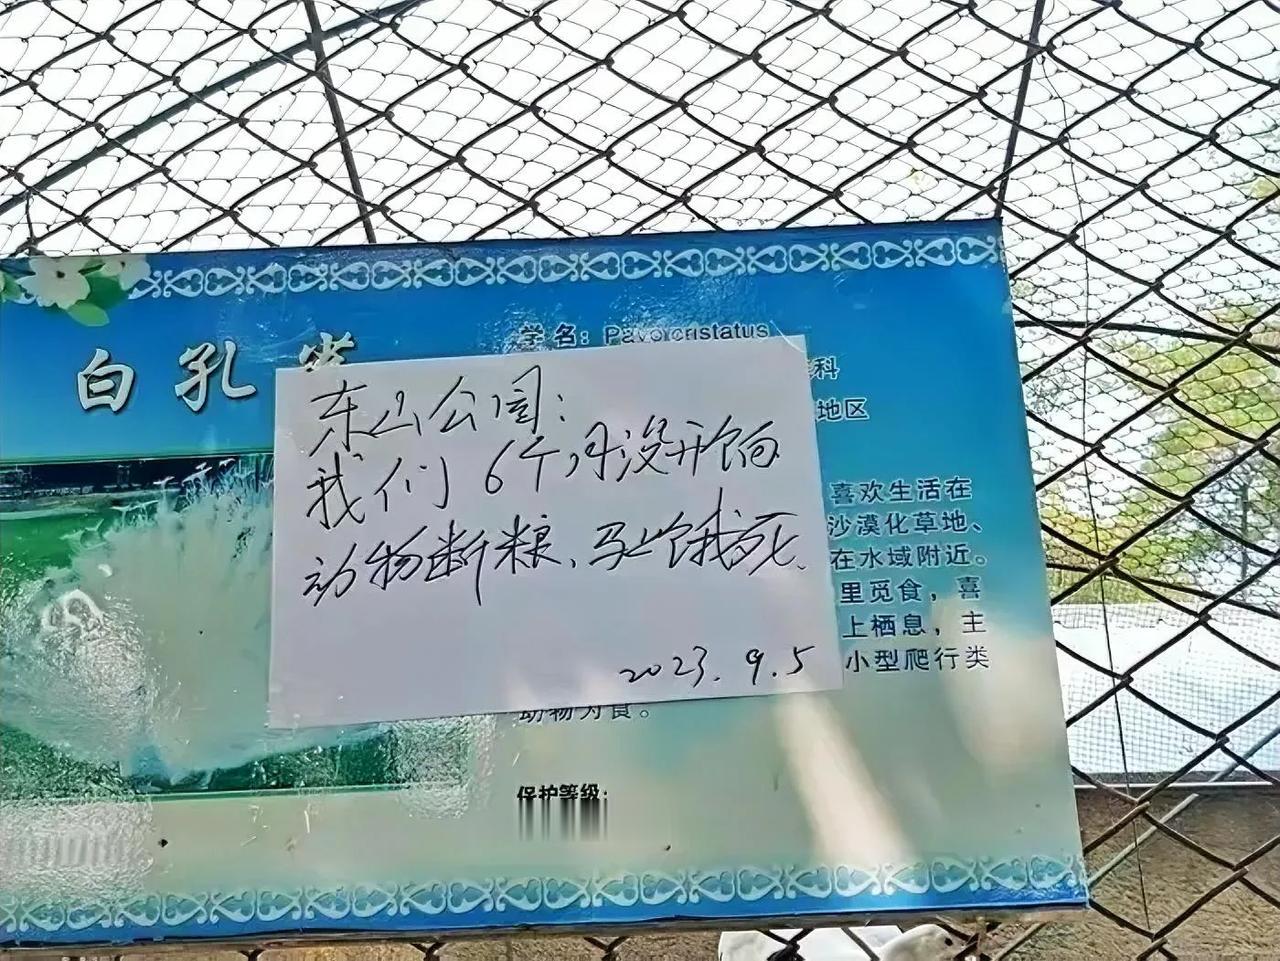 白孔雀
学名：Pavo cristatus
科
地区
东山公园：
我们6个月没开饷
动物断粮、马上饿死、
2023.9.5
喜欢生活在
沙漠化草地、
在水域附近。
里觅食，喜
上栖息，主
小型爬行类
动物为食。
保护等级：